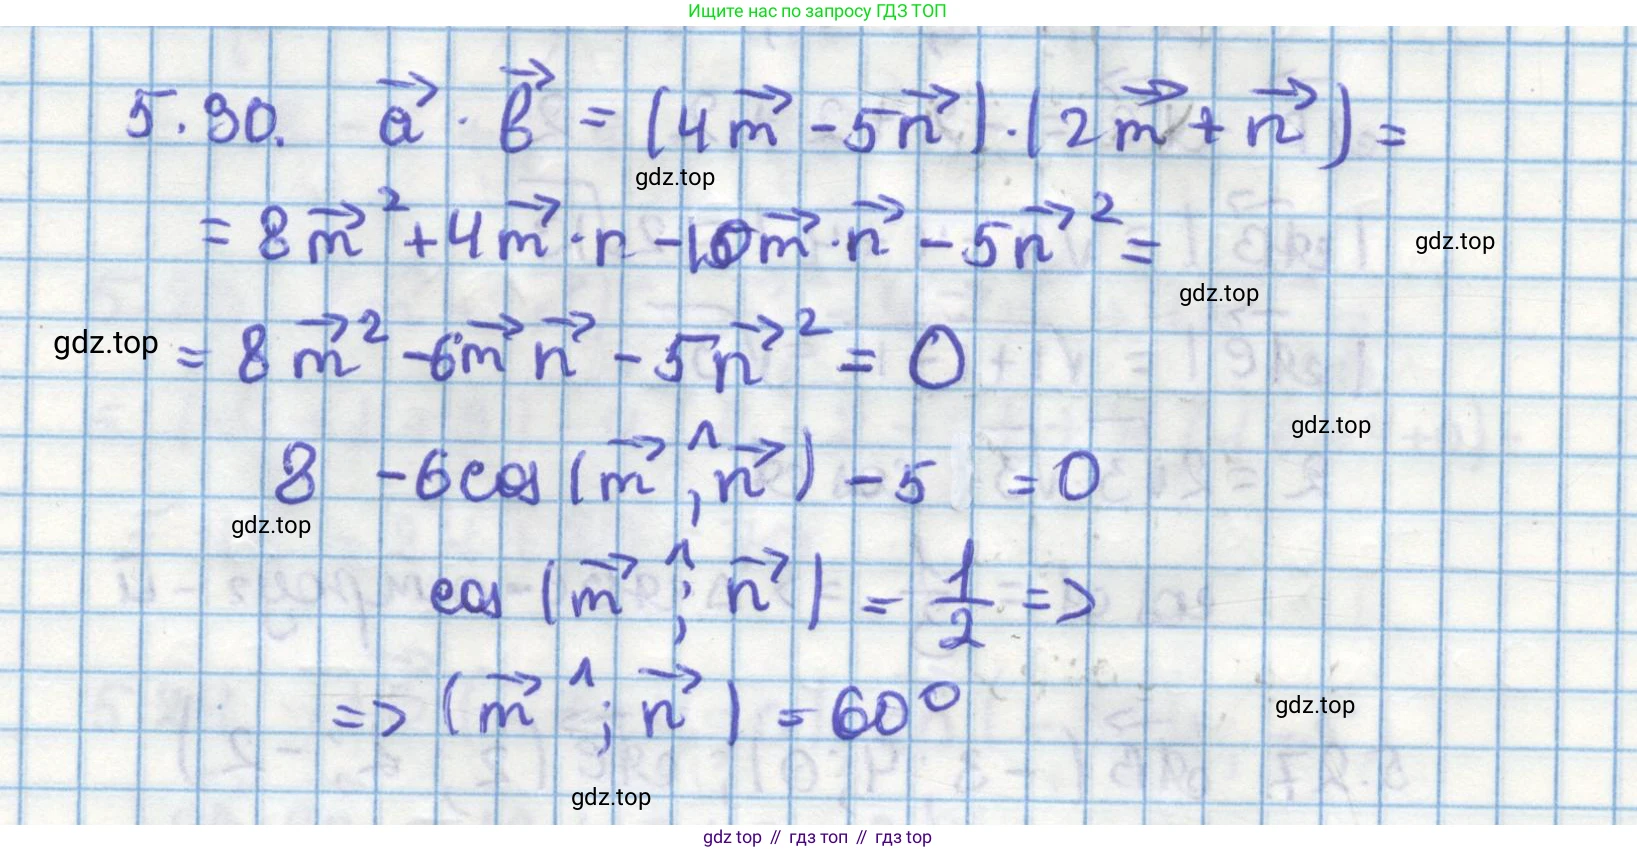 Ищите нас по запросу ГДЗ ТОП
5.90. a⃗ · b⃗ = (4m⃗ - 5n⃗) · (2m⃗ + n⃗) =
gdz.top
= 8m⃗² + 4m⃗ · n - 10m⃗ · n⃗ - 5n⃗² =
gdz.top
gdz.top
gdz.top
= 8m⃗² - 6m⃗ n⃗ - 5n⃗² = 0
gdz.top
8 - 6cos(m⃗ ^, n⃗) - 5 = 0
gdz.top
cos(m⃗ ^; n⃗) = 1/2 =>
=> (m⃗ ^; n⃗) = 60°
gdz.top
gdz.top
gdz top // гдз топ // гдз top